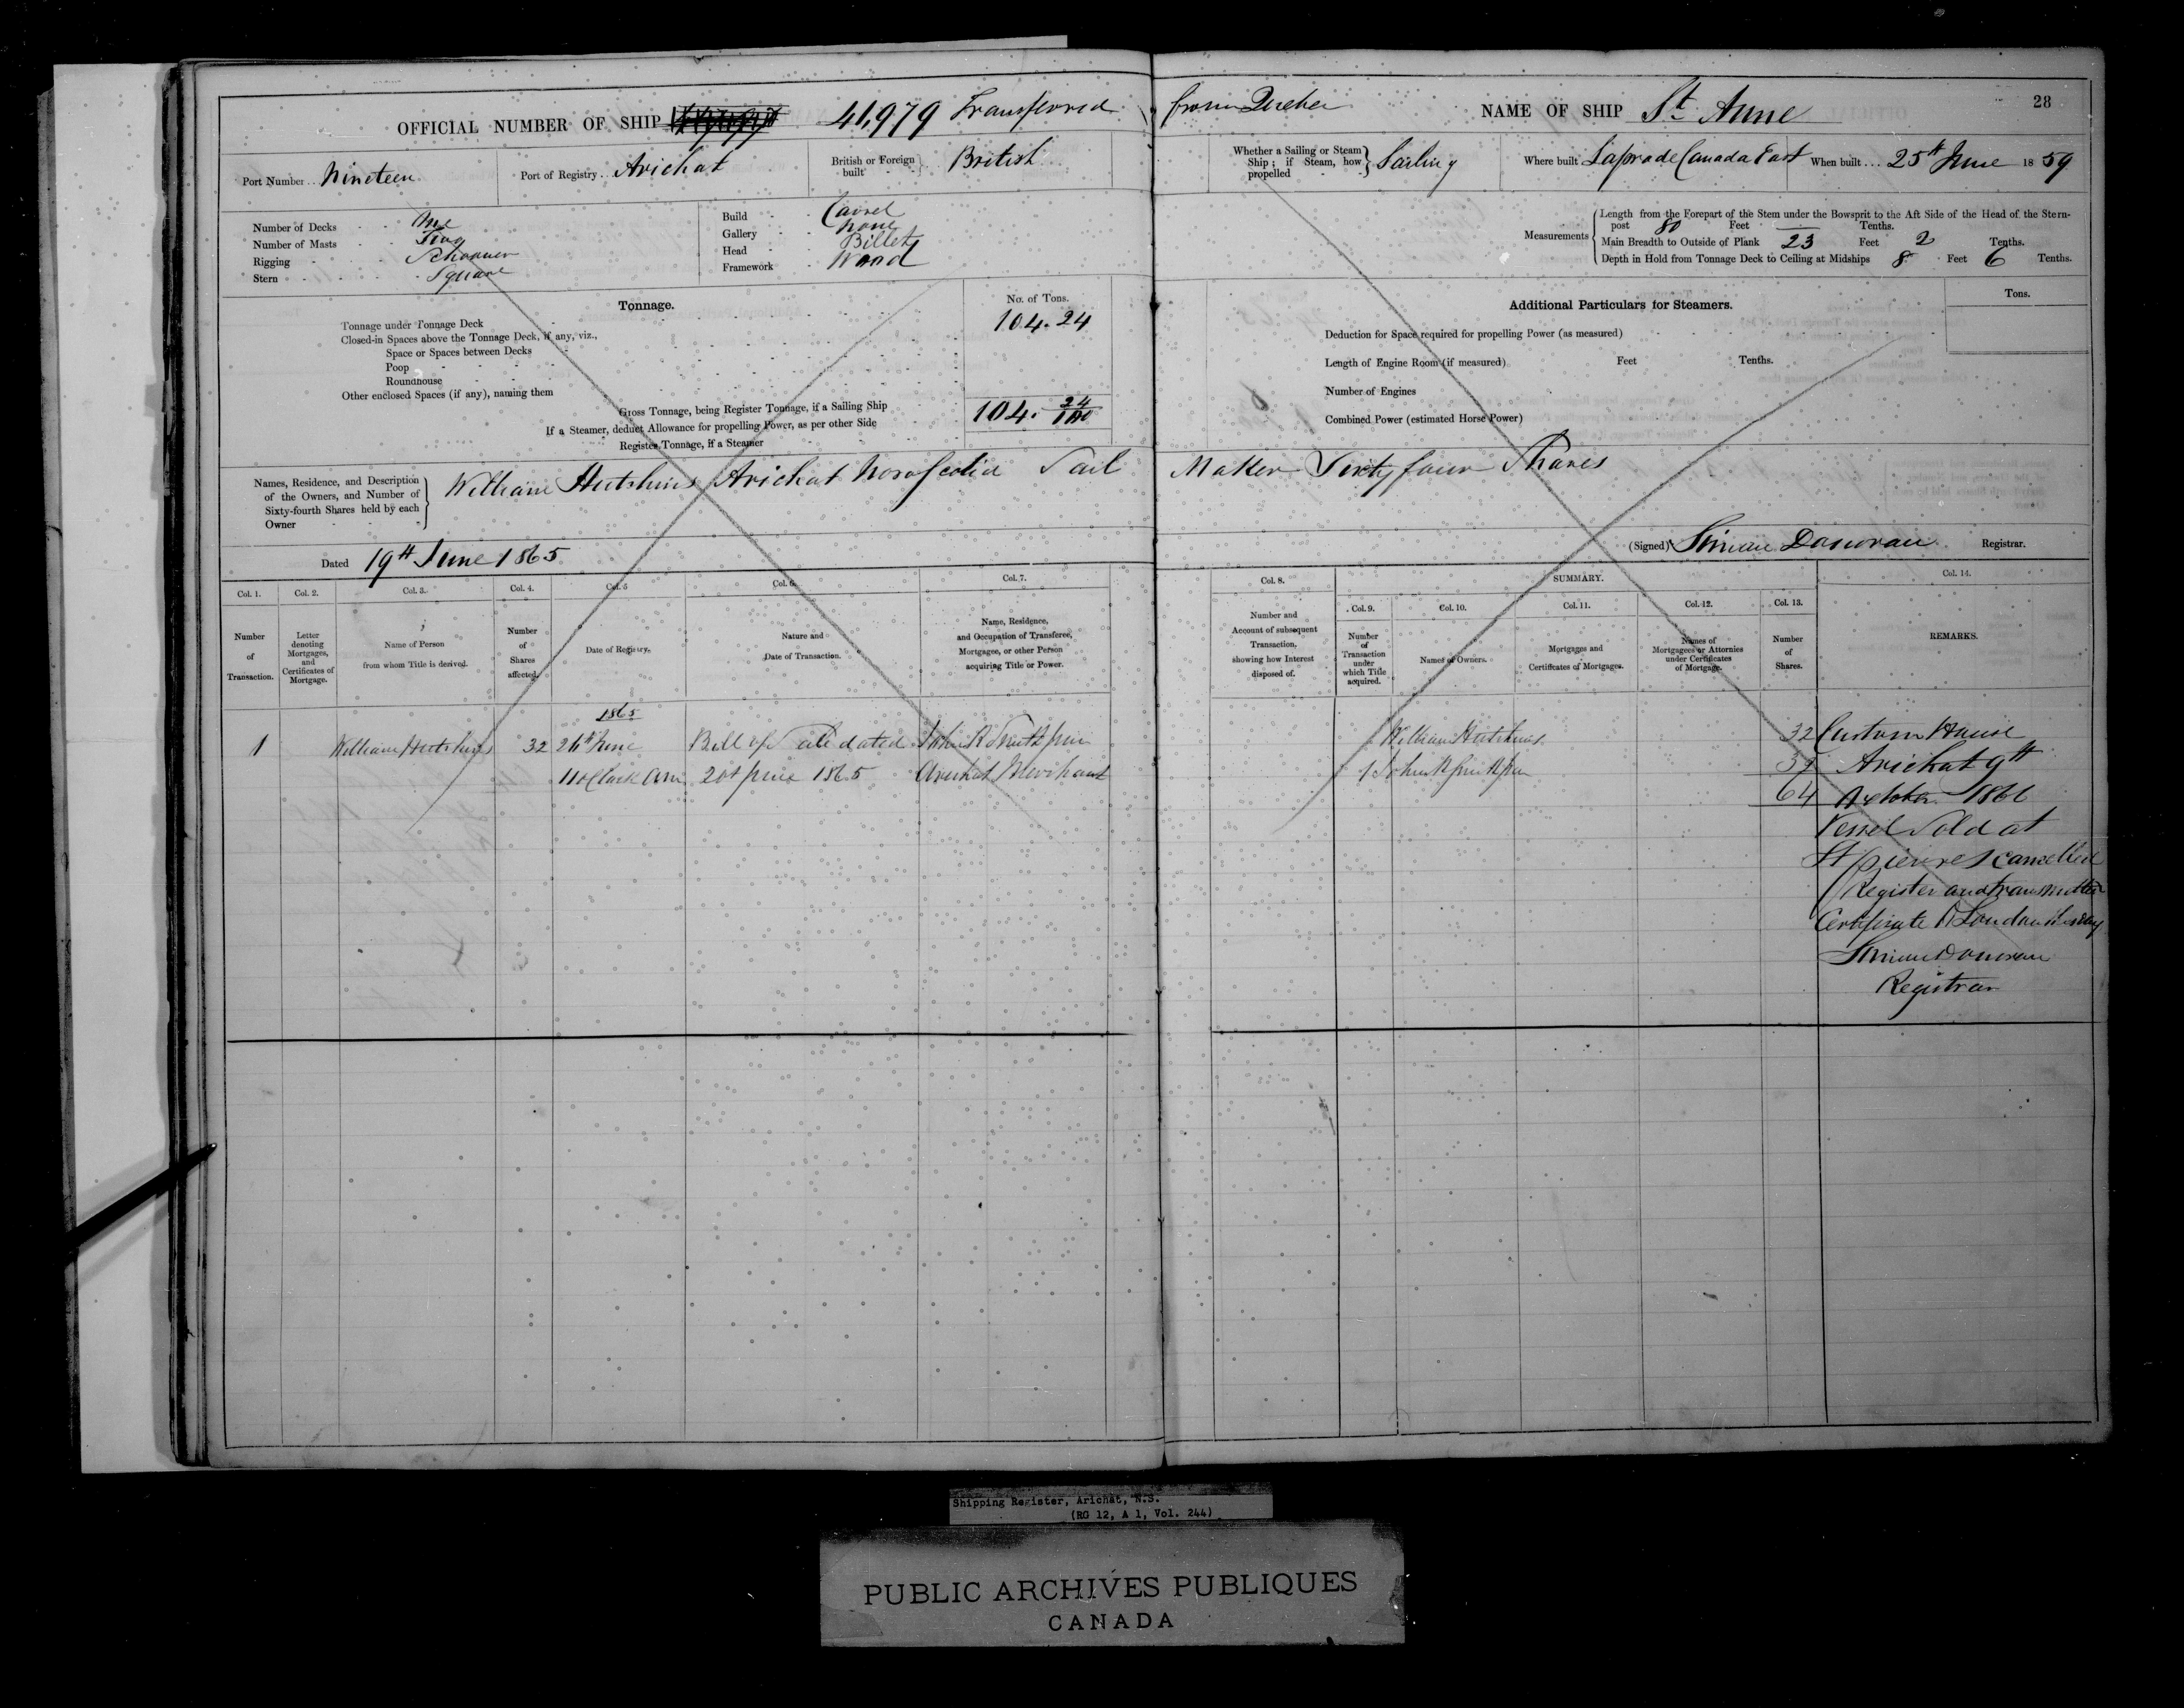 28
OFFICIAL NUMBER OF SHIP 41,979 Transferred from Quebec NAME OF SHIP St. Anne
Port Number . . Nineteen Port of Registry . . Arichat British or Foreign built British
Whether a Sailing or Steam Ship ; if Steam, how propelled } Sailing Where built Canada East When built . . . 25th June 18 59
Number of Decks One
Number of Masts Two
Rigging Schooner
Stern Square
Build Carvel
Gallery None
Head Billet
Framework Wood
Measurements { Length from the Forepart of the Stem under the Bowsprit to the Aft Side of the Head of the Stern-
post 80 Feet Tenths.
Main Breadth to Outside of Plank 23 Feet 2 Tenths.
Depth in Hold from Tonnage Deck to Ceiling at Midships 8 Feet 6 Tenths.
Tonnage. No. of Tons.
Tonnage under Tonnage Deck 104.24
Closed-in Spaces above the Tonnage Deck, if any, viz.,
Space or Spaces between Decks
Poop
Roundhouse
Other enclosed Spaces (if any), naming them
Gross Tonnage, being Register Tonnage, if a Sailing Ship 104. 24/100
If a Steamer, deduct Allowance for propelling Power, as per other Side
Register Tonnage, if a Steamer
Additional Particulars for Steamers. Tons.
Deduction for Space required for propelling Power (as measured)
Length of Engine Room (if measured) Feet Tenths.
Number of Engines
Combined Power (estimated Horse Power)
Names, Residence, and Description
of the Owners, and Number of
Sixty-fourth Shares held by each
Owner
William Hutchins Arichat Nova Scotia Sail Maker Sixty four Shares
Dated 19th June 1865 (Signed) Simon Donovan Registrar.
Col. 1. Col. 2. Col. 3. Col. 4. Col. 5 Col. 6. Col. 7.
Number of Transaction.
Letter denoting Mortgages, and Certificates of Mortgage.
Name of Person from whom Title is derived.
Number of Shares affected.
Date of Registry.
Nature and Date of Transaction.
Name, Residence, and Occupation of Transferee, Mortgagee, or other Person acquiring Title or Power.
Col. 8. SUMMARY. Col. 14.
Col. 9. Col. 10. Col. 11. Col. 12. Col. 13.
Number and Account of subsequent Transaction, showing how Interest disposed of.
Number of Transaction under which Title acquired.
Names of Owners.
Mortgages and Certificates of Mortgages.
Names of Mortgagees or Attornies under Certificates of Mortgage.
Number of Shares.
REMARKS.
1865
1 William Hutchins 32 26th June Bill of Sale dated John R
11 oClock am 1865 Arichat Merchant
William Hutchins 32
1 John 32
64
Custom House
Arichat 9th
October 1866
Vessel Sold at
St pierre & cancelled
Register and transmitted
Certificate to London
Simon Donovan
Registrar
Shipping Register, Arichat, N.S.
(RG 12, A 1, Vol. 244)
PUBLIC ARCHIVES PUBLIQUES
CANADA